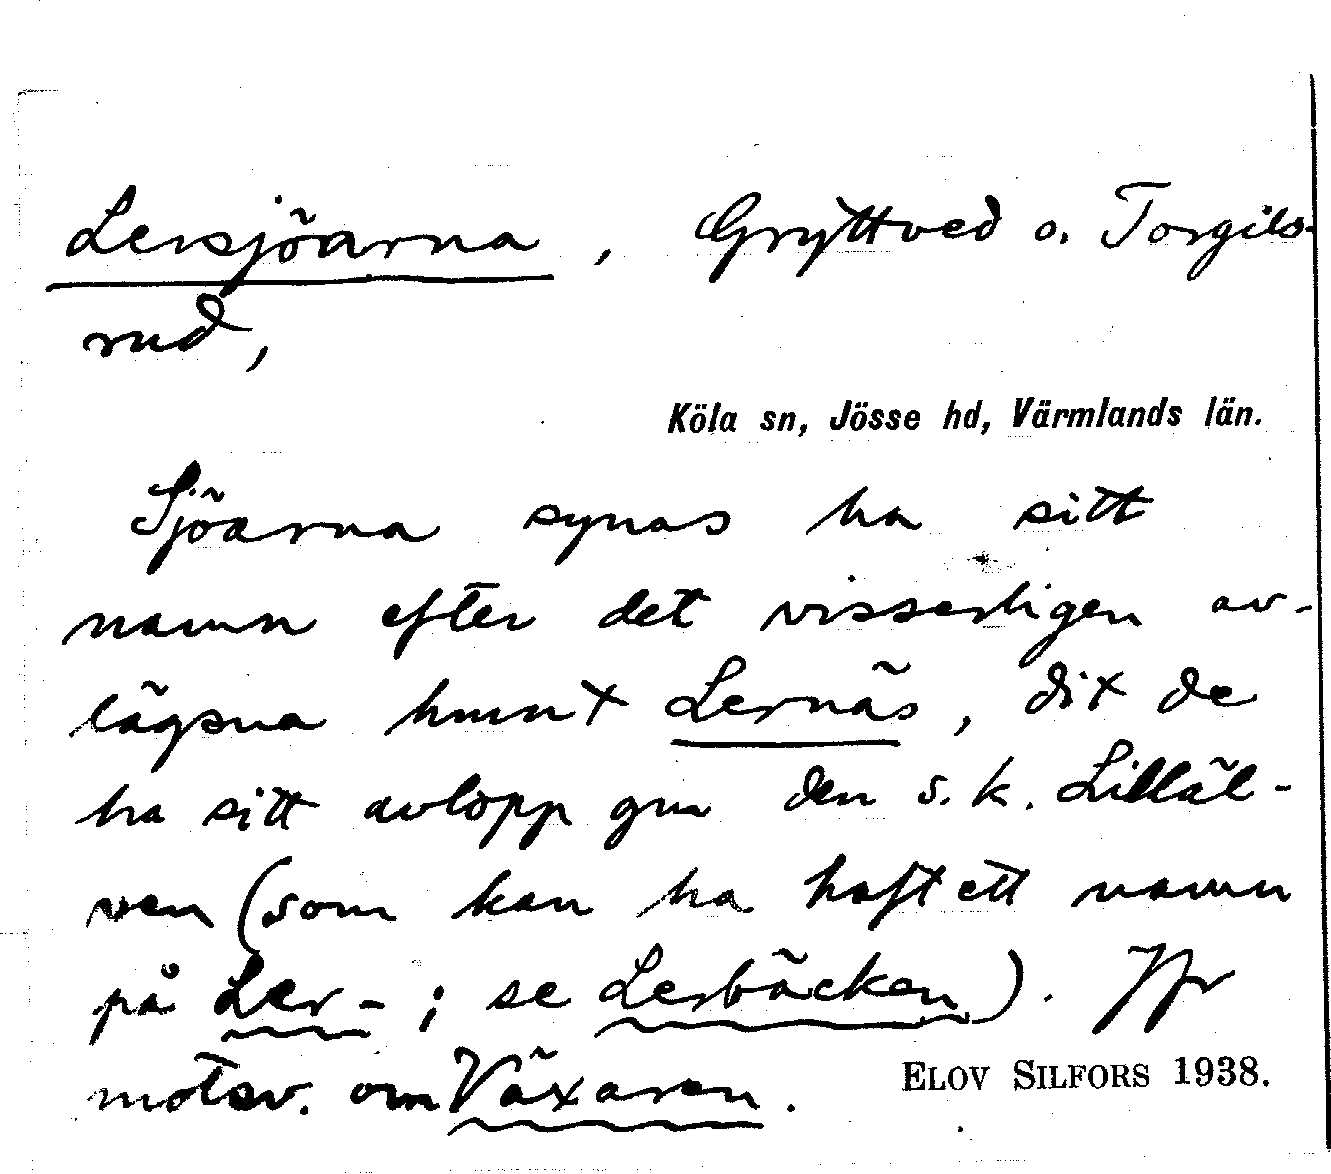 Lersjöarna, Gryttved o. Torgils-
rud,
Köla sn, Jösse hd, Värmlands län.
Sjöarna synas ha sitt
namn efter det visserligen av-
lägsna hmnt Lernäs, dit de
ha sitt avlopp gm den s.k. Lilläl-
ven (som kan ha haft ett namn
på Ler-; se Lerbäcken). Jfr
motsv. om Växaren.
ELOV SILFORS 1938.